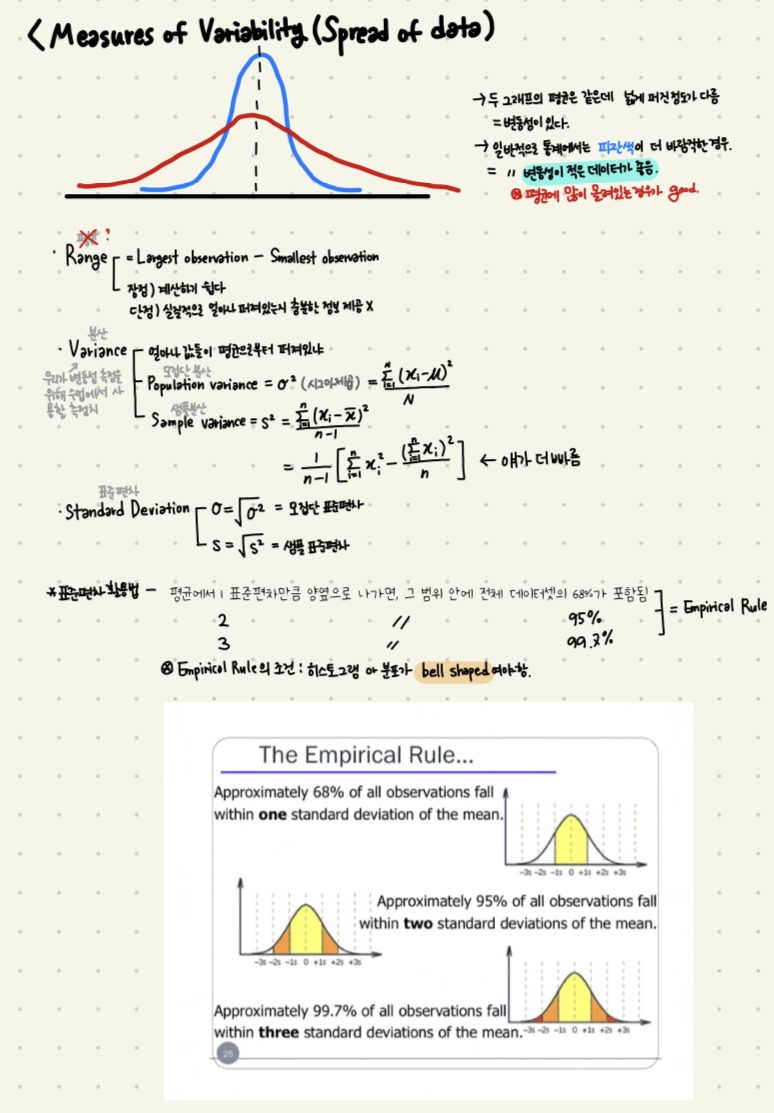 < Measures of Variability (Spread of data)
→ 두 그래프의 평균은 같은데 넓게 퍼진정도가 다름
= 변동성이 있다.
→ 일반적으로 통계에서는 파란색이 더 바람직한 경우.
= 〃 변동성이 적은 데이터가 좋음.
⊛ 평균에 많이 몰려있는경우가 good.
?
· Range = Largest observation - Smallest observation
장점) 계산하기 쉽다
단점) 실질적으로 얼마나 퍼져있는지 충분한 정보 제공 X
분산
· Variance 얼마나 값들이 평균으로부터 퍼져있냐
우리가 변동성 측정을
위해 수업에서 사
용할 측정치
모집단 분산
Population variance = σ² (시그마제곱) = Σᵢ₌₁ᴺ (xᵢ-μ)² / N
샘플분산
Sample variance = s² = Σᵢ₌₁ⁿ (xᵢ-x̄)² / n-1
= 1/n-1 [Σᵢ₌₁ⁿ xᵢ² - (Σᵢ₌₁ⁿ xᵢ)² / n] ← 얘가 더 빠름
표준편차
· Standard Deviation σ = √σ² = 모집단 표준편차
s = √s² = 샘플 표준편차
* 표준편차 활용법 - 평균에서 1 표준편차만큼 양옆으로 나가면, 그 범위 안에 전체 데이터셋의 68%가 포함됨 = Empirical Rule
2 〃 95%
3 〃 99.7%
⊛ Empirical Rule의 조건 : 히스토그램 아 분포가 bell shaped여야함.
The Empirical Rule...
Approximately 68% of all observations fall
within one standard deviation of the mean.
-3s -2s -1s 0 +1s +2s +3s
Approximately 95% of all observations fall
within two standard deviations of the mean.
-3s -2s -1s 0 +1s +2s +3s
Approximately 99.7% of all observations fall
within three standard deviations of the mean.
-3s -2s -1s 0 +1s +2s +3s
25